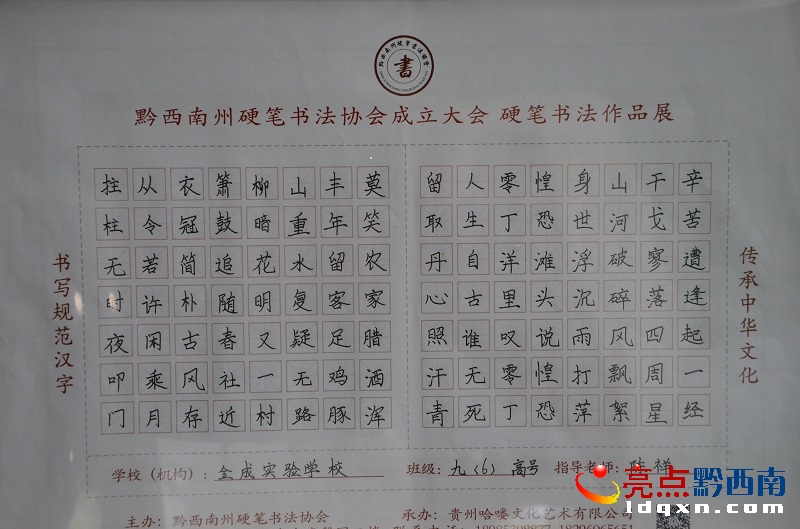 黔西南州硬笔书法协会
書
黔西南州硬笔书法协会成立大会 硬笔书法作品展
传承中华文化
辛苦遭逢起一经
干戈寥落四周星
山河破碎风飘絮
身世浮沉雨打萍
惶恐滩头说惶恐
零丁洋里叹零丁
人生自古谁无死
留取丹心照汗青
莫笑农家腊洒浑
丰年留客足鸡豚
山重水复疑无路
柳暗花明又一村
箫鼓追随春社近
衣冠简朴古风存
从令若许闲乘月
拄柱无时夜叩门
书写规范汉字
学校（机构）：金成实验学校 班级：九（6） 高号 指导老师：陈祥
主办：黔西南州硬笔书法协会 承办：贵州哈喽文化艺术有限公司
亮点黔西南
ldqxn.com